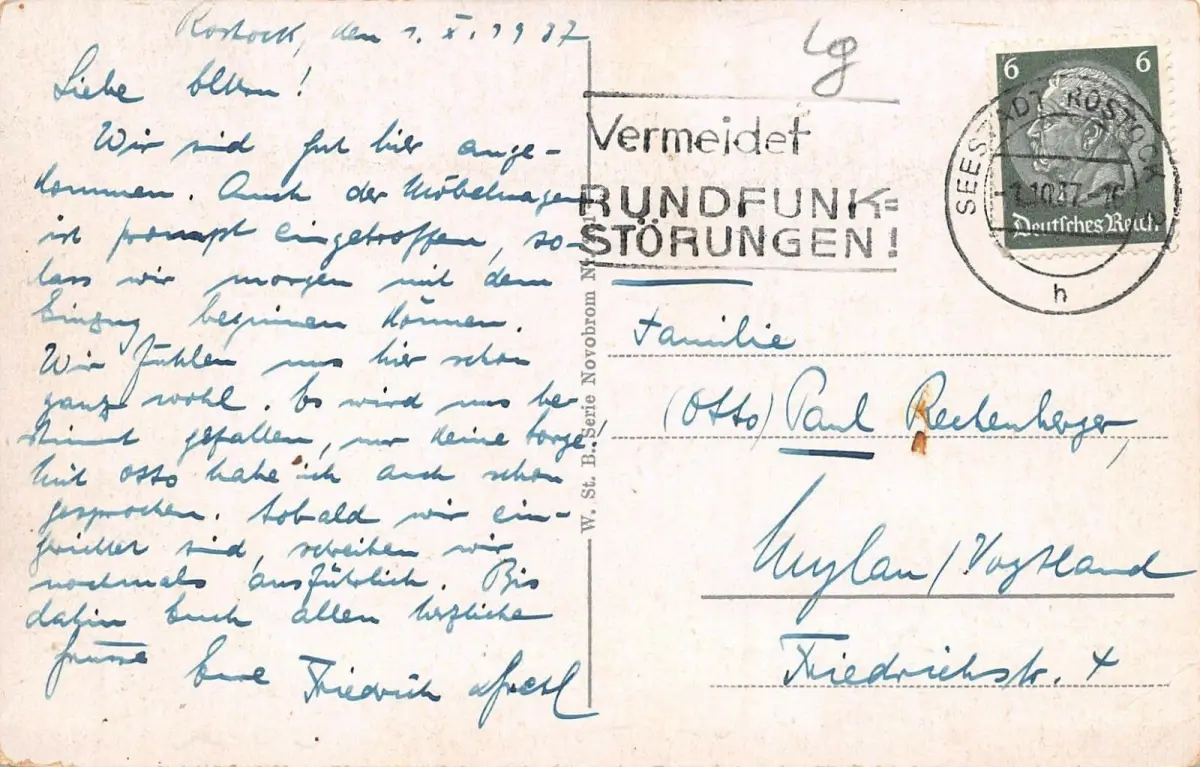 Rostock, den 1. X. 1937
Liebe Eltern!
Wir sind gut hier ange-
kommen. Auch der Möbelwagen
ist prompt eingetroffen, so-
dass wir morgen mit dem
Einzug beginnen können.
Wir fühlen uns hier schon
ganz wohl. Es wird uns be-
stimmt gefallen, nur keine Sorge!
Mit Otto habe ich auch schon
gesprochen. Sobald wir ein-
gerichtet sind, schreiben wir
nochmals ausführlich. Bis
dahin Euch allen herzliche
Grüsse Eure Friedrich
W. St. B. Serie Novobrom Nr.
Vermeidet
RUNDFUNK=
STÖRUNGEN!
6 6
Deutsches Reich
SEESTADT ROSTOCK 2
-1.10.37.-16
h
Familie
(Otto) Paul Rechenberger,
Mylau / Vogtland
Friedrichstr. 4